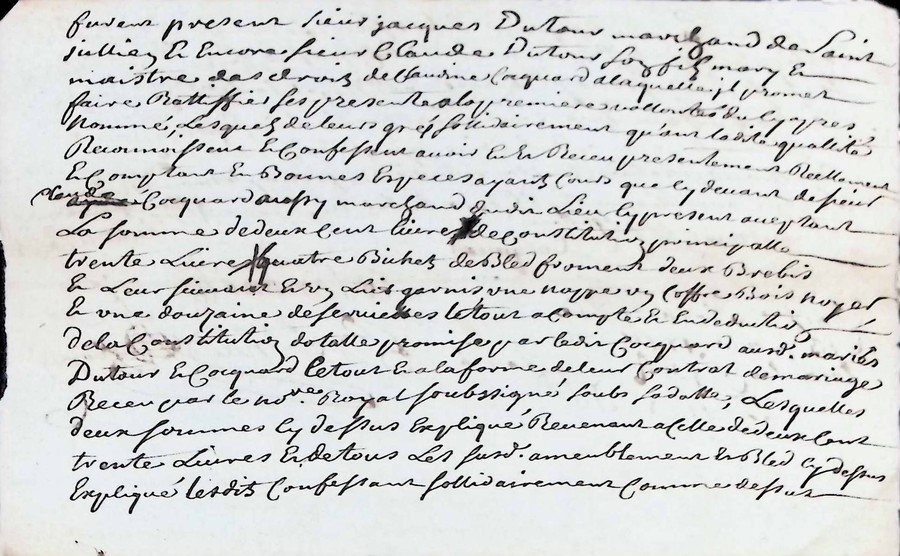 furent present sieur jacques Dutour marchand de Saint
jullien Et Encore sieur Claude Dutour son fils mary Et
maistre des droits de Claudine Cocquard a laquelle il promet
faire Rattiffie ses presente a la premiere vollontes du cy apres
Nommé, Lesquels de leurs grés sollidairement qu'aux ladite qualité
Reconnoissent Et Confessent avoir Eu Et Receu presentement Reellement
Et Comptant En Bonnes Especes ayant Cours que cy devant de sieur
Claude Cocquard aussy marchand dudit Lieu cy present acceptant
La somme de deux Cent livres de Constitution principalle
trente Livres quatre Bichets de Bled froment deux Brebis
Et Leur suivant Et un Lict garnis une Nappe un Coffre Bois Noyer
Et une douzaine de servietes le tout a Compte Et En deduction
de la Constitution dotalle promise par ledit Cocquard ausd. mariés
Dutour Et Cocquard le tout En a la forme de leur Contrat de mariage
Receu par le no.re Royal soubssigné soubs sa datte, Lesquelles
deux sommes cy dessus Expliqué Revenant a Celle de deux Cent
trente Livres Et de tous Les susd. ameublement Et Bled cy dessus
Expliqué lesdits Confessant sollidairement Comme dessus